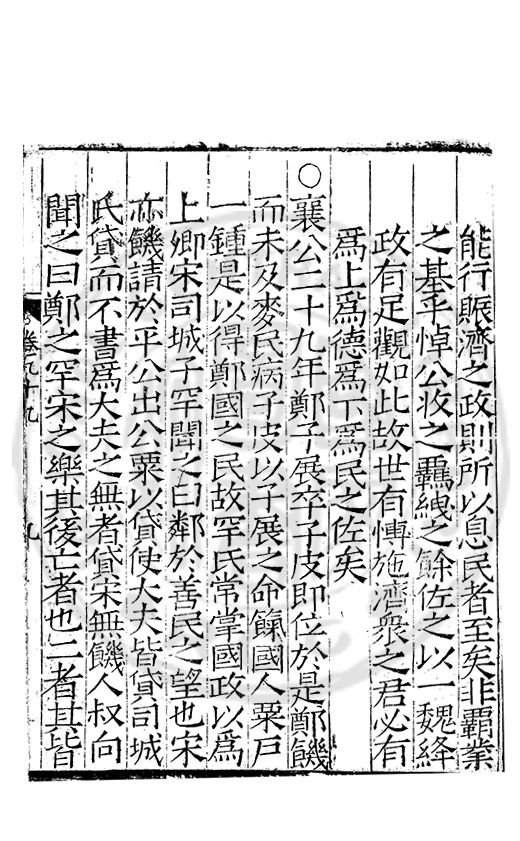 能行賑濟之政則所以息民者至矣非覇業
之基乎悼公收之羈紲之餘佐之以一魏絳
政有足觀如此故世有慱施濟衆之君必有
爲上爲德爲下爲民之佐矣
○襄公二十九年鄭子展卒子皮即位於是鄭饑
而未及麥民病子皮以子展之命餼國人粟戶
一鍾是以得鄭國之民故罕氏常掌國政以爲
上卿宋司城子罕聞之曰鄰於善民之望也宋
亦饑請於平公出公粟以貸使大夫皆貸司城
氏貸而不書爲大夫之無者貸宋無饑人叔向
聞之曰鄭之罕宋之樂其後亡者也二者其皆
卷九十九
九